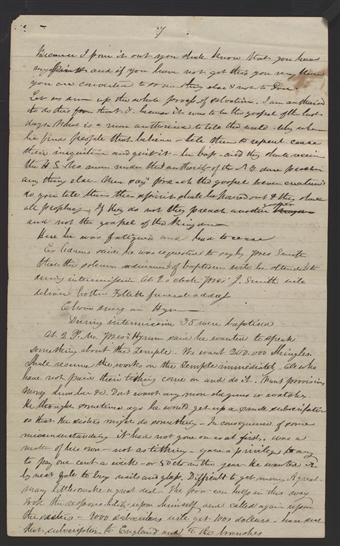 7
Because I pour it out you shall know that you have
my spirit and if you have not got this you may think
you are converted to some thing else & not to God
Let us sum up the whole proofs of salvation. I am authorized
to do so from that I know it was to be the gospel of the last
days. Where is a man authorized to tell the world why when
he finds people that believe - tells them to repent cease
their iniquities and quicken - be bap. and they shall receive
the H. G. No man under that authority of the N.T. dare preach
any thing else. Men may preach the gospel to every creature
as you tell them this spirit shall be poured out & they shall
all prophesy. If they do not they preach another gosper
and not the gospel of the kingdom
Here he was fatigued and had to cease
Er Adams said he was requested to say by Pres. Smith
that the solemn ordinance of baptism would be attended to
during intermission At 2 o clock Pres' J. Smith will
deliver brother Follett funeral address
Choir sung an Hymn
During intermission 35 were baptized
At 2 P.M. Pres' Hyrum said he wanted to speak
something about the temple. We want 200.000 shingles
Shall resume the work on the temple immediately. All who
have not paid their tithing come on and do it. Want provisions
money lumber &c. Dont want any more old guns or watches
He thought sometime ago he would get up a small subscription
so that the sisters might do something. In consequence of some
misunderstanding it had not gone on as at first. It was a
matter of his own - not as tithing - gave a privilege to any
to pay one cent a week - or 50 cts in the year. He wanted it
by next fall to buy nails and glass. Difficult to get money. A great
many littles make a great deal. The poor can help in this way
took the responsibility upon himself and called again upon
the sisters - 1000 subscribers will get 500 dollars - have sent
this subscription to England and to the branches